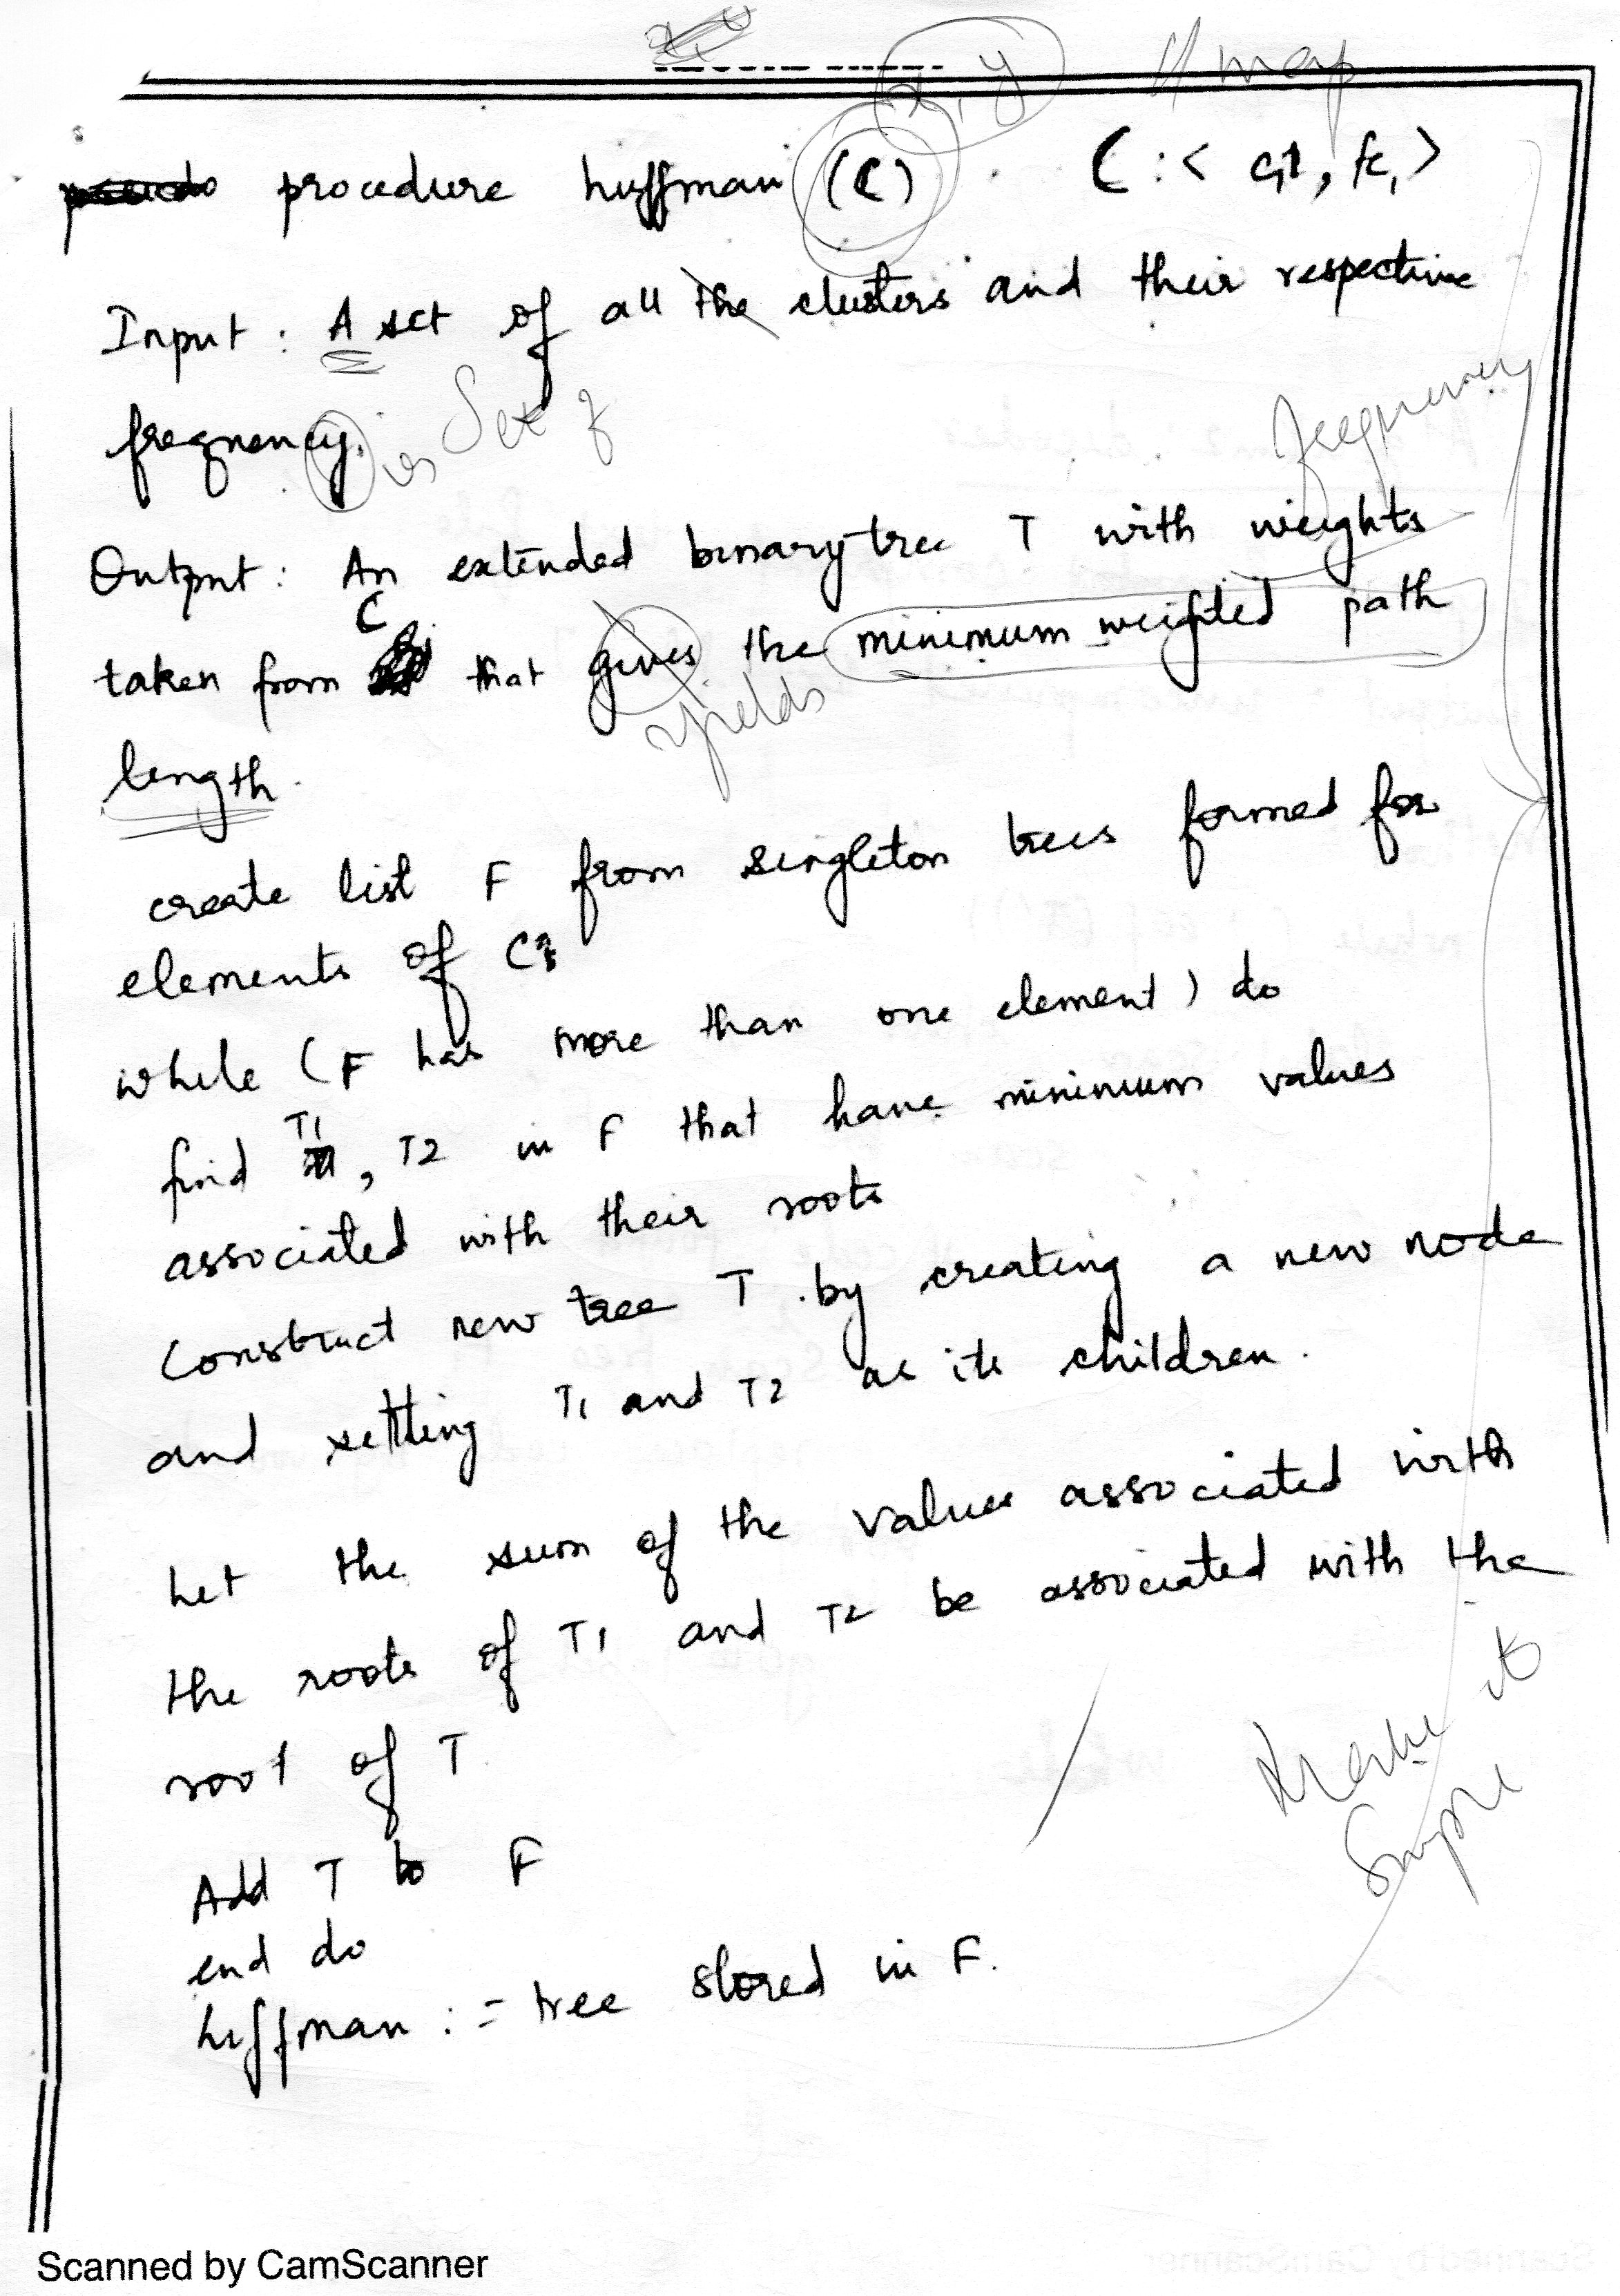 x, y // map
procedure huffman (C) C : <
Input : A set of all the clusters and their respective
frequency. is Set of
frequency
Output : An extended binary tree T with weights
C
taken from that gives the minimum weighted path
yields
length.
create list F from singleton trees formed for
elements of C
while (F has more than one element) do
T1
find , T2 in F that have minimum values
associated with their roots
Construct new tree T by creating a new node
and setting T1 and T2 as its children.
Let the sum of the values associated with
the roots of T1 and T2 be associated with the
root of T
Make it
Simple
Add T to F
end do
huffman := tree stored in F.
Scanned by CamScanner